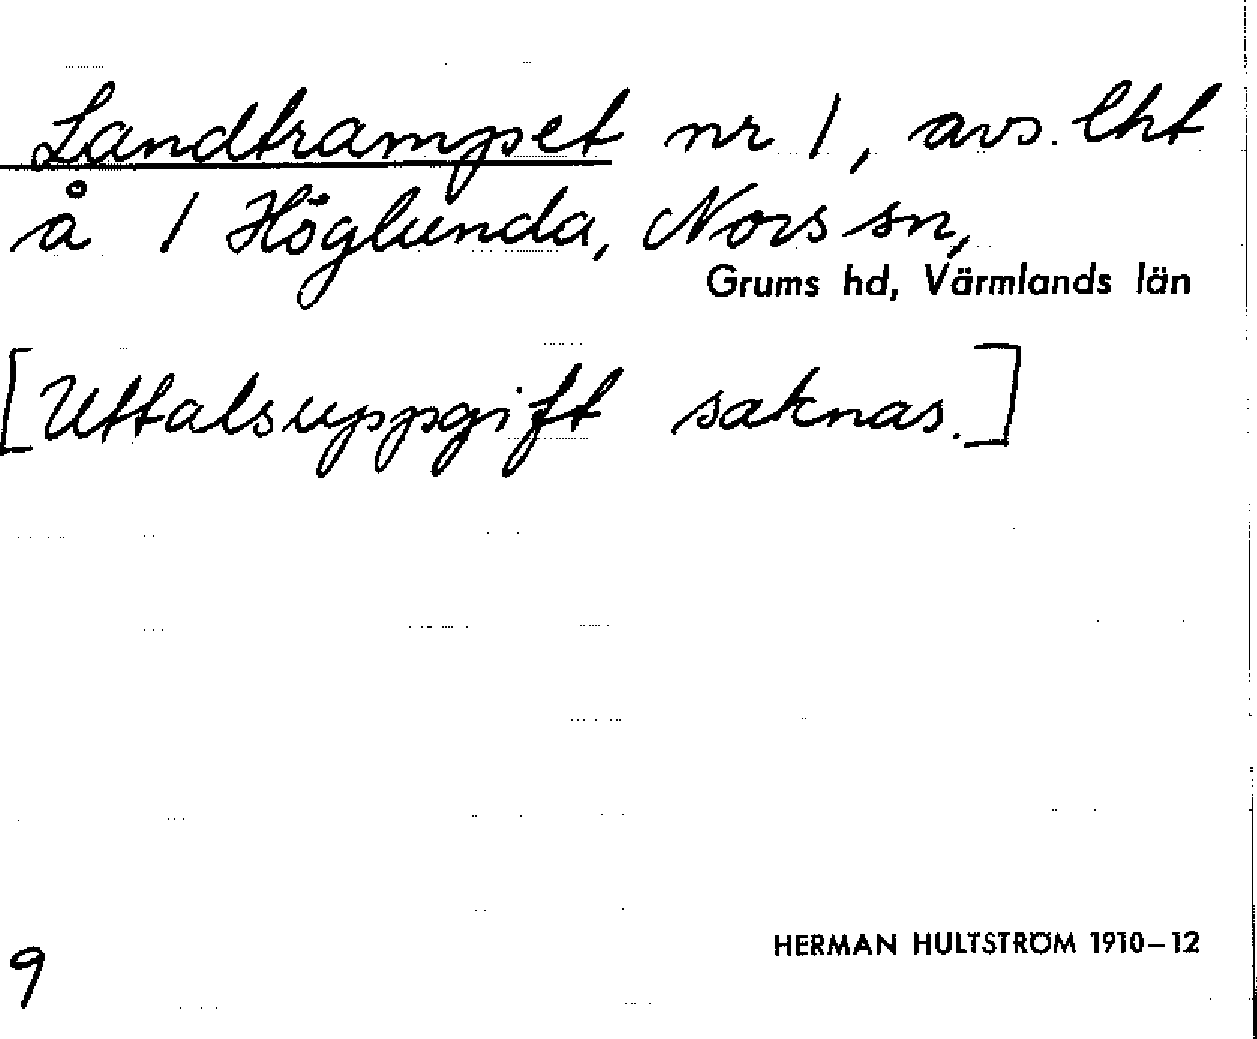 Landtrampet nr 1, avs. lht
å 1 Höglunda, Nors sn,
Grums hd, Värmlands län
[Uttalsuppgift saknas.]
HERMAN HULTSTRÖM 1910–12
9